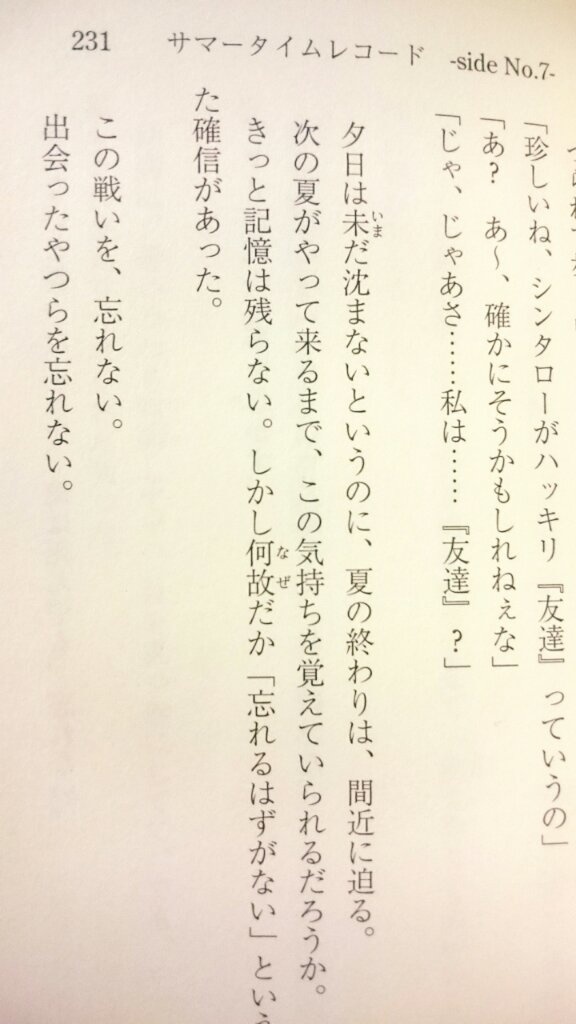 231
サマータイムレコード -side No.7-
「珍しいね、シンタローがハッキリ『友達』っていうの」
「あ? あ〜、確かにそうかもしれねぇな」
「じゃ、じゃあさ……私は……『友達』?」
夕日は未だ沈まないというのに、夏の終わりは、間近に迫る。
次の夏がやって来るまで、この気持ちを覚えていられるだろうか。
きっと記憶は残らない。しかし何故だか「忘れるはずがない」という
た確信があった。
この戦いを、忘れない。
出会ったやつらを忘れない。